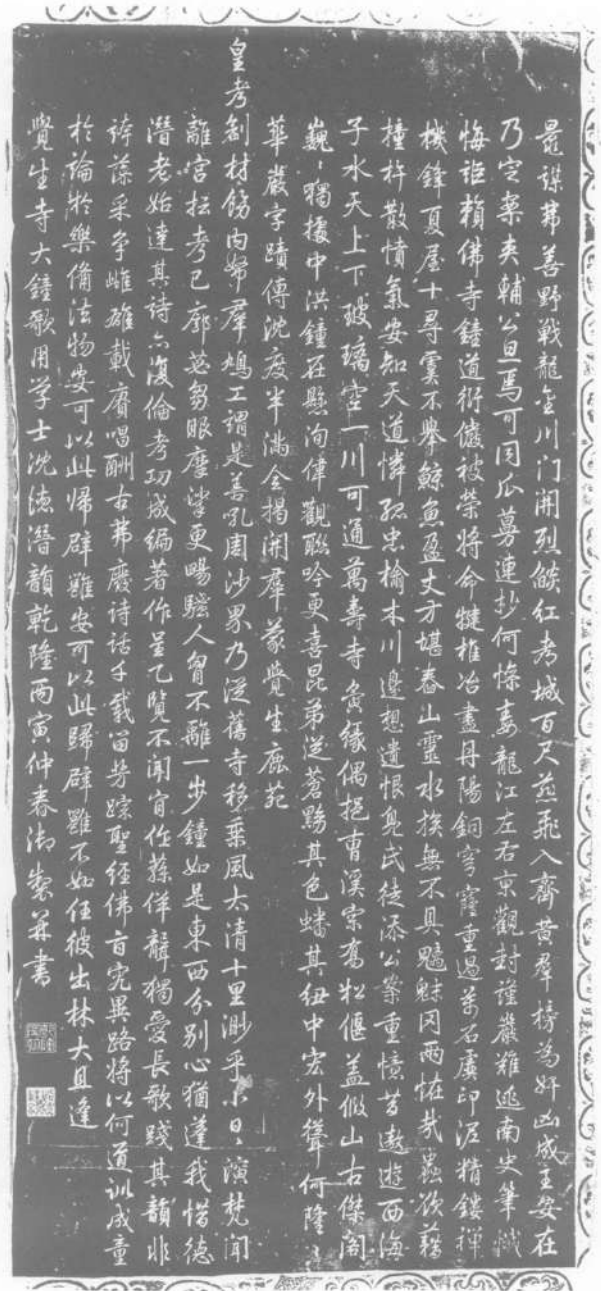 鼂謀弗善野戰龍金川门開烈餤紅考城百尺燕飛入齊黃羣榜為奸凶成王安在
乃定案夾輔公旦焉可同瓜蔓連抄何慘毒龍江左右京觀封謹嚴難逃南史筆懺
悔詎賴佛寺鐘道衍儼被榮將命犍椎冶盡丹陽銅穹窿重過萬石虡印泥精鏤禪
機鋒夏屋十尋虡不舉鯨魚盈丈方堪舂山靈水族無不具魑魅罔兩恠哉蟲欲藉
撞杵散憤氣安知天道憐孤忠榆木川邊想遺恨鳧氏徒添公案重憶昔遨遊西海
子水天上下玻璃空一川可通萬壽寺緣偶挹曹溪宗喬松偃蓋假山古傑閣
巍〻獨據中洪鐘在懸洵偉觀聯吟更喜昆弟從蒼黝其色蟠其紐中宏外聳何隆〻
華嚴字蹟傳沈度半滿全揭開羣蒙覺生鹿苑
皇考創材餝內帑羣鳩工謂是善吼周沙界乃從舊寺移乘風太清十里渺乎小日〻演梵聞
離宮抎考已廓苾芻眼摩挲更暢騷人胷不離一步鐘如是東西分別心猶蓬我惜德
潛老始達其詩亦復倫考功成編著作呈乙覽不聞宵作佯聾獨愛長歌踐其韻非
誇藻采爭雌雄載賡唱酬古弗廢詩話千載留芳踪聖經佛旨究異路將以何道訓成童
於論於樂備法物安可以此歸辟雝安可以此歸辟雝不如任彼出林大且逢
覺生寺大鐘歌用學士沈德潛韻乾隆丙寅仲春御製并書